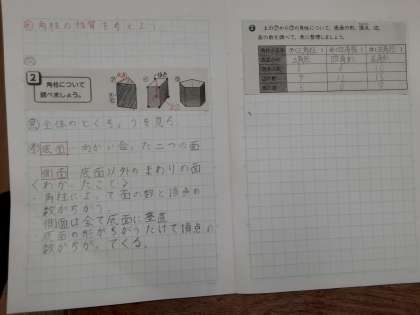 角柱の性質を考えよう
2
角柱について
調べましょう。
全体のとくちょうを見る
底面 向かい合った二つの面
側面 底面以外のまわりの面
くわかったこと>
・角柱によって面の数と頂点の
数がちがう。
側面は全て底面に垂直
底面の形がちがうだけで頂点の
数がちがってくる。
2 上の
の角柱について、底面の形、頂点、辺、
面の数を調べて、表に整理しましょう。
三角柱
四角柱
底面の形
三角形
四角形
頂点の数
辺の数
面の数